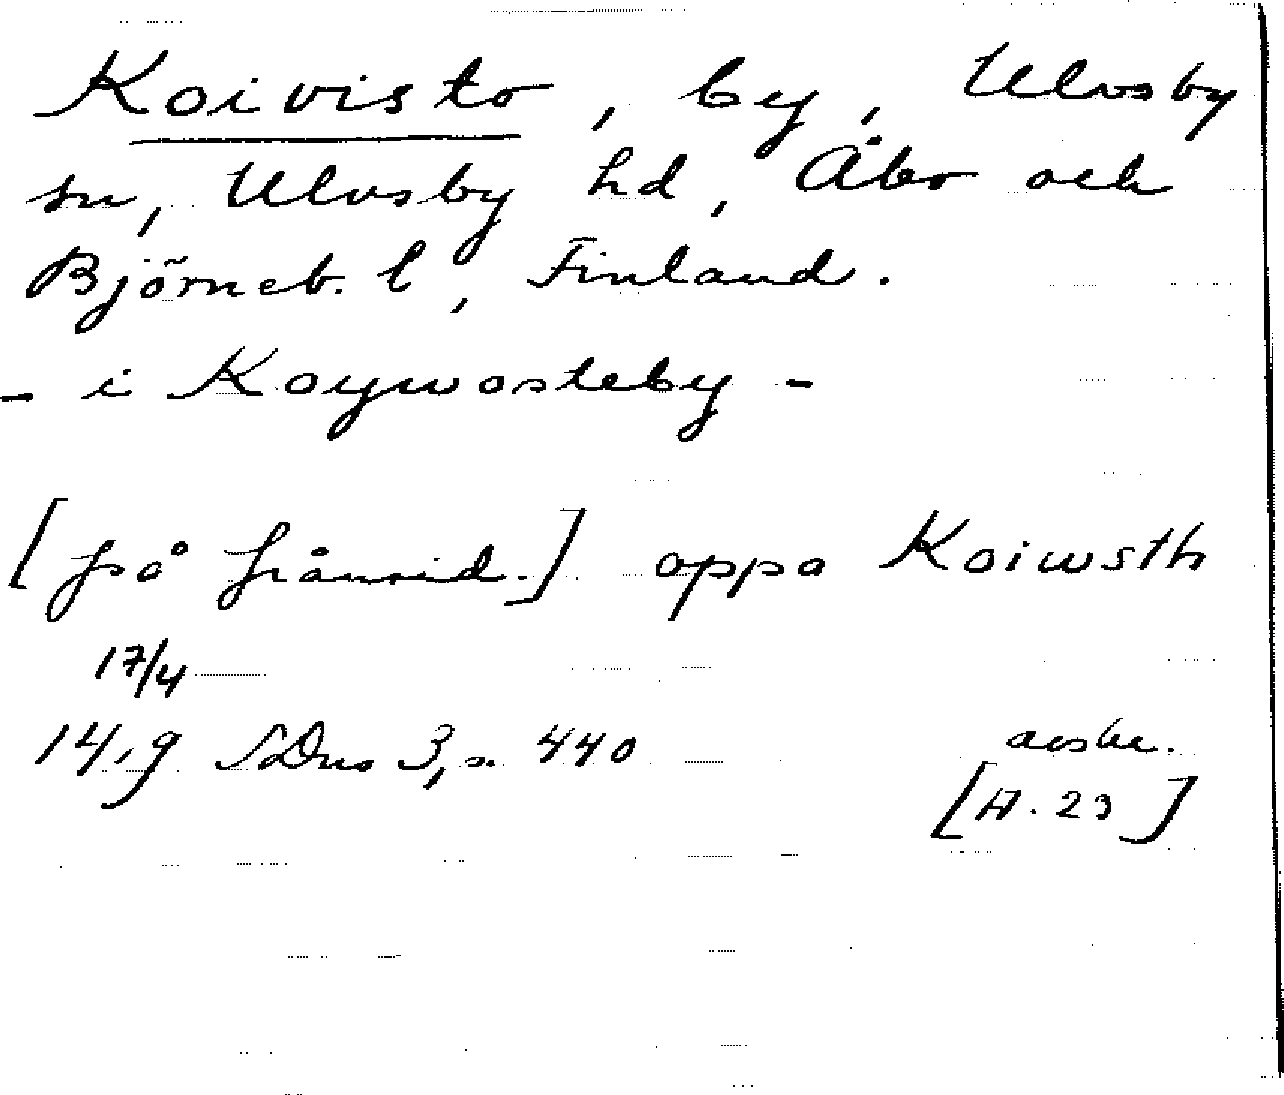 Koivisto, by, Ulvsby
sn, Ulvsby hd, Åbo och
Björneb. l, Finland.
- i Koywosteby -
[på frånsid.] oppa Koiwsth
17/4
1419 SDns 3, s. 440 avskr.
[A. 23]